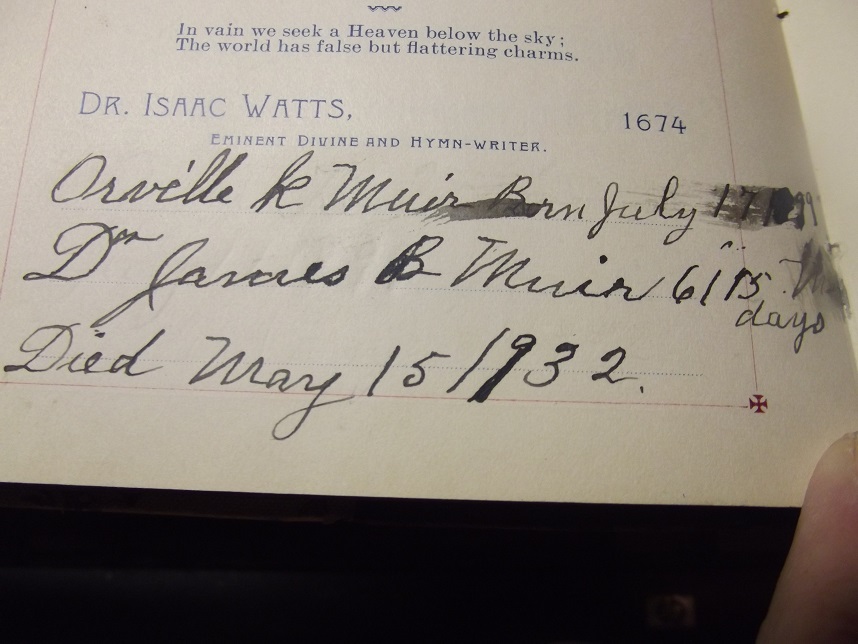 In vain we seek a Heaven below the sky;
The world has false but flattering charms.
DR. ISAAC WATTS, 1674
EMINENT DIVINE AND HYMN-WRITER.
Orville K Muir Born July 17
James B Muir
days
Died May 15/1932.